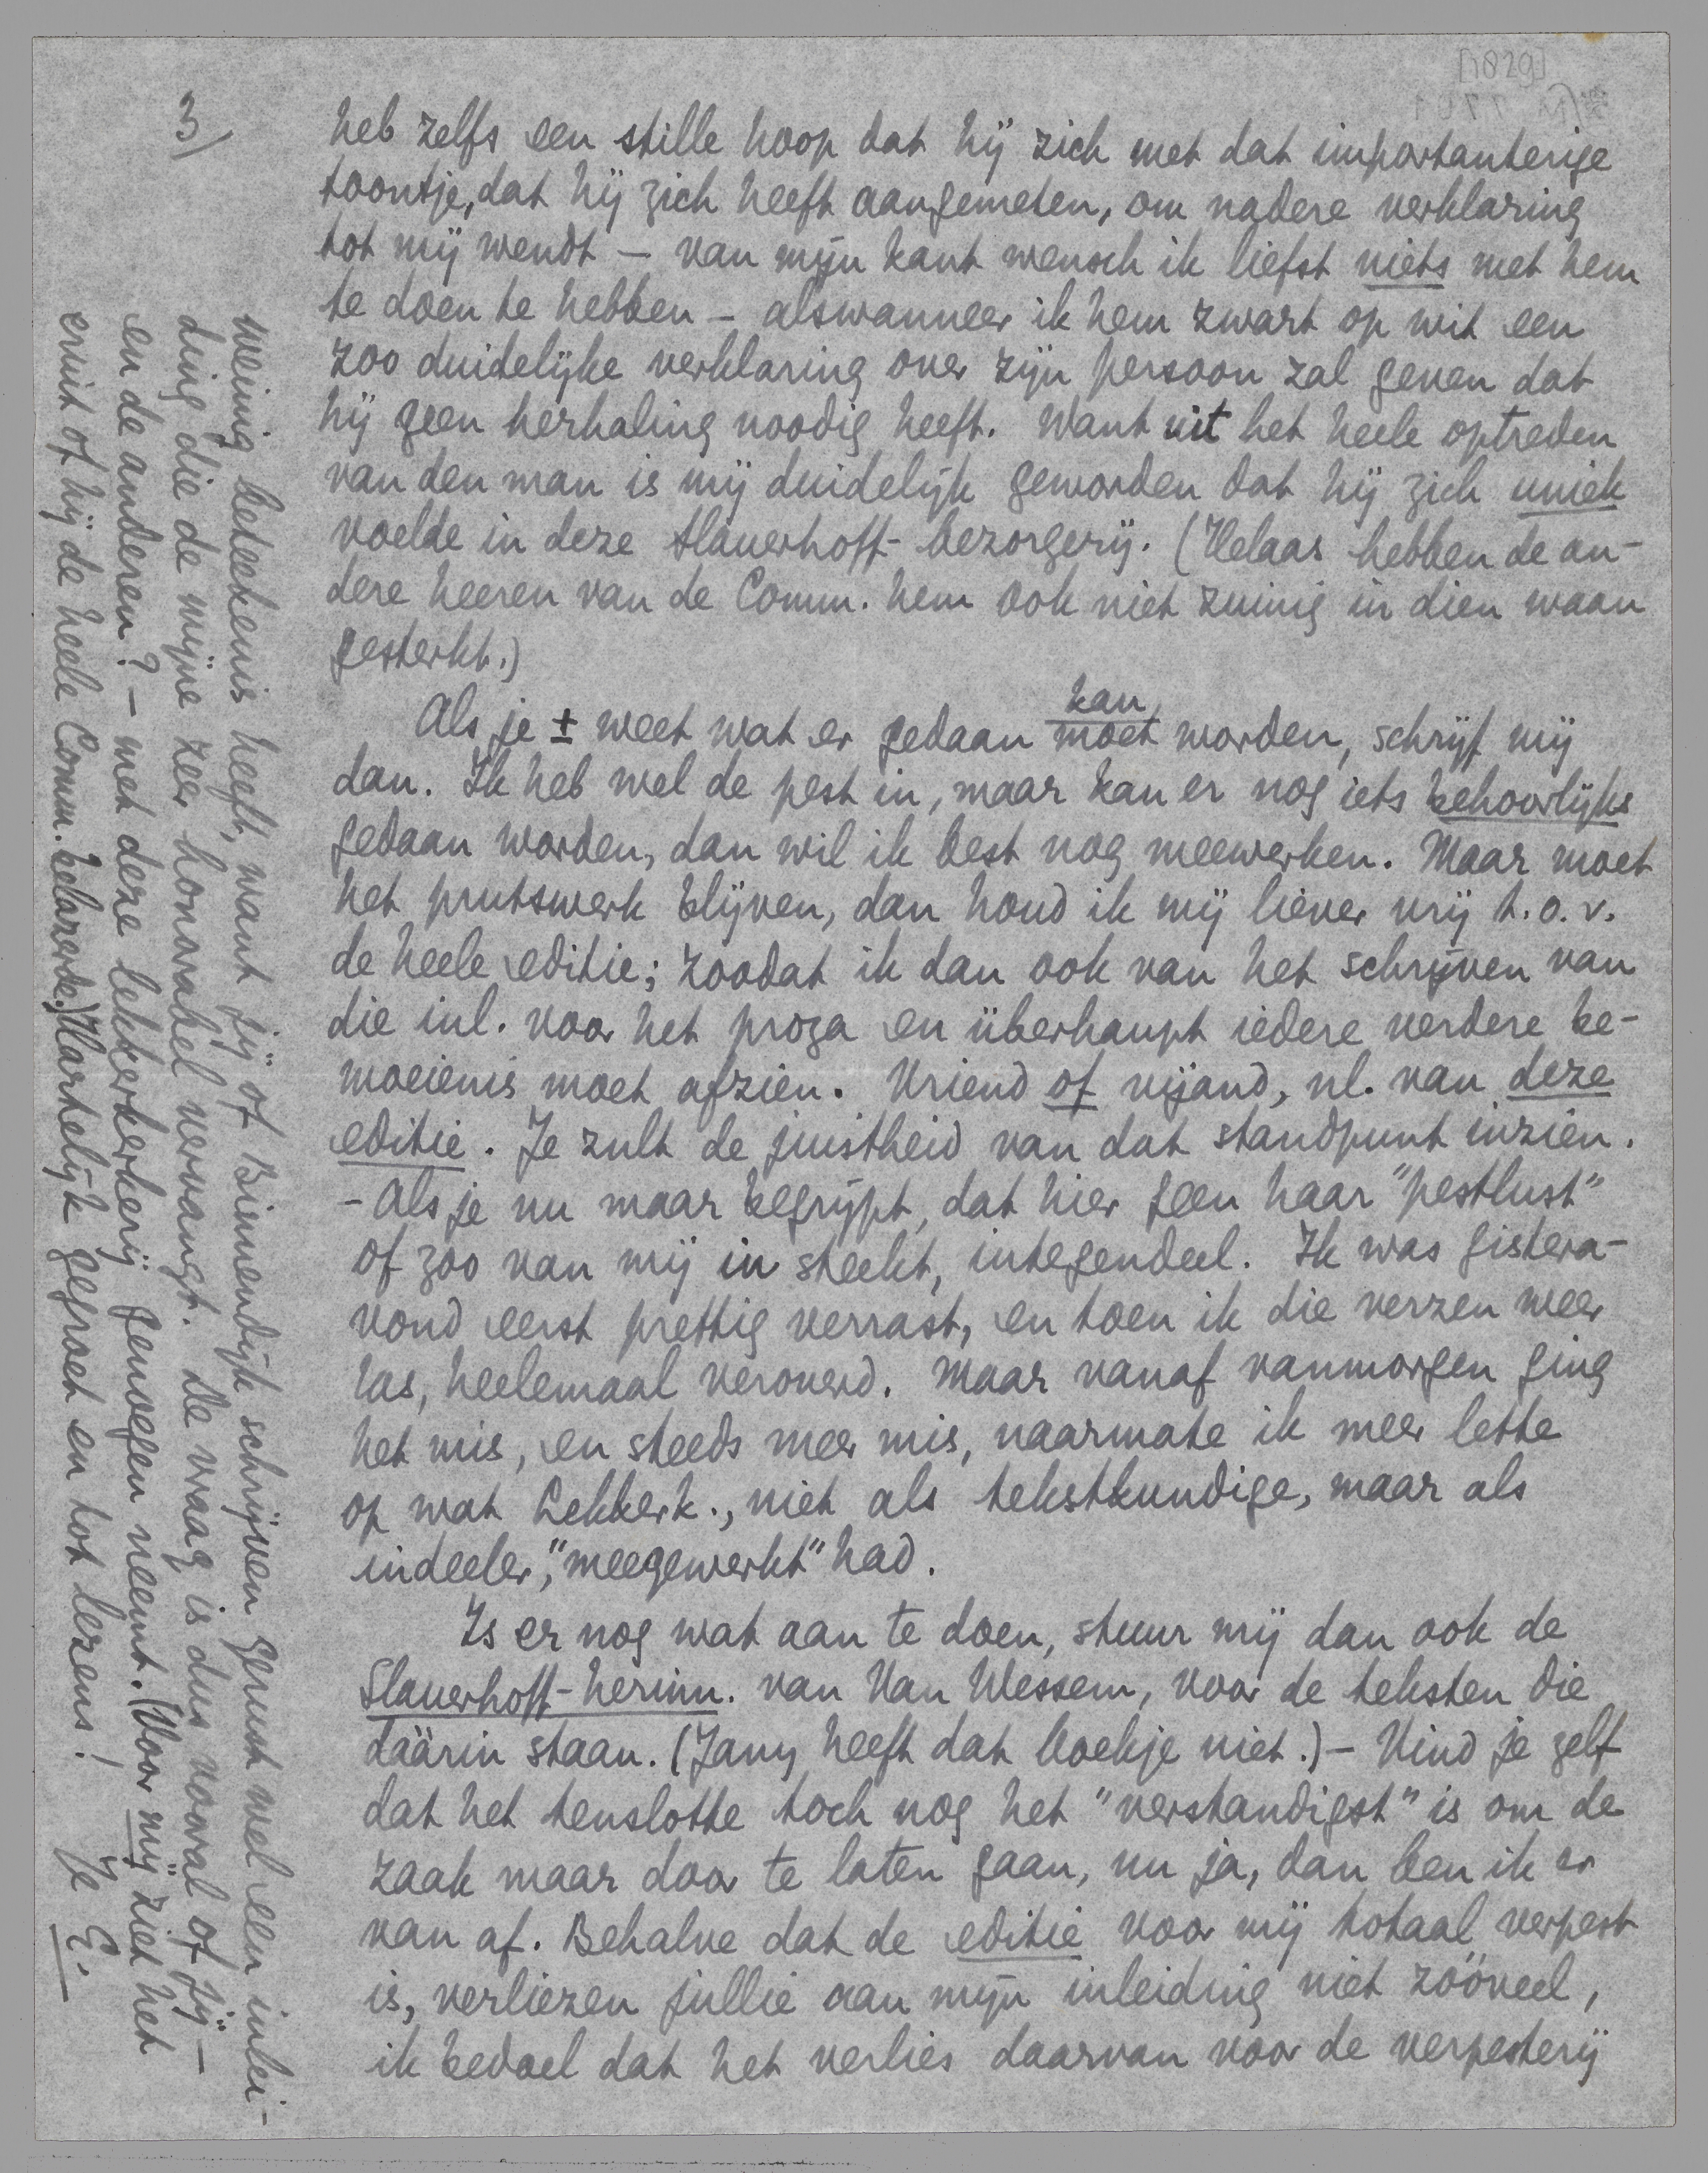 3)
heb zelfs een stille hoop dat hij zich met dat importanterige
toontje, dat hij zich heeft aangemeten, om nadere verklaring
tot mij wendt – van mijn kant wensch ik liefst niets met hem
te doen te hebben – alswanneer ik hem zwart op wit een
zoo duidelijke verklaring over zijn persoon zal geven dat
hij geen herhaling noodig heeft. Want uit het heele optreden
van den man is mij duidelijk geworden dat hij zich uniek
voelde in deze Slauerhoff-bezorgerij. (Helaas hebben de an-
dere heeren van de Comm. hem ook niet zuinig in dien waan
gesterkt.)
kan
Als je ± weet wat er gedaan moet worden, schrijf mij
dan. Ik heb wel de pest in, maar kan er nog iets behoorlijks
gedaan worden, dan wil ik best nog meewerken. Maar moet
het prutswerk blijven, dan houd ik mij liever vrij t.o.v.
de heele editie; zoodat ik dan ook van het schrijven van
die inl. voor het proza en überhaupt iedere verdere be-
moeienis moet afzien. Vriend of vijand, nl. van deze
editie. Je zult de juistheid van dat standpunt inzien.
– Als je nu maar begrijpt, dat hier geen haar "pestlust"
of zoo van mij in steekt, integendeel. Ik was gistera-
vond eerst prettig verrast, en toen ik die verzen weer
las, heelemaal veroverd. Maar vanaf vanmorgen ging
het mis, en steeds meer mis, naarmate ik meer lette
op wat Lekkerk., niet als tekstkundige, maar als
indeeler, "meegewerkt" had.
Is er nog wat aan te doen, stuur mij dan ook de
Slauerhoff-herinn. van Van Wessem, voor de teksten die
dáárin staan. (Jany heeft dat boekje niet.) – Vind je zelf
dat het tenslotte toch nog het "verstandigst" is om de
zaak maar door te laten gaan, nu ja, dan ben ik er
van af. Behalve dat de editie voor mij totaal verpest
is, verliezen jullie aan mijn inleiding niet zóóveel,
ik bedoel dat het verlies daarvan voor de verpesterij
weinig beteekenis heeft, want jij of Binnendijk schrijven gerust wel een inlei-
ding die de mijne zeer honorabel vervangt. De vraag is dus vooral of jij –
en de anderen? – met deze lekkerkerkerij genoegen neemt. (Voor mij ziet het
eruit of hij de heele Comm. belazerde.) Hartelijk gegroet en tot lezens!
Je E.
[1829]